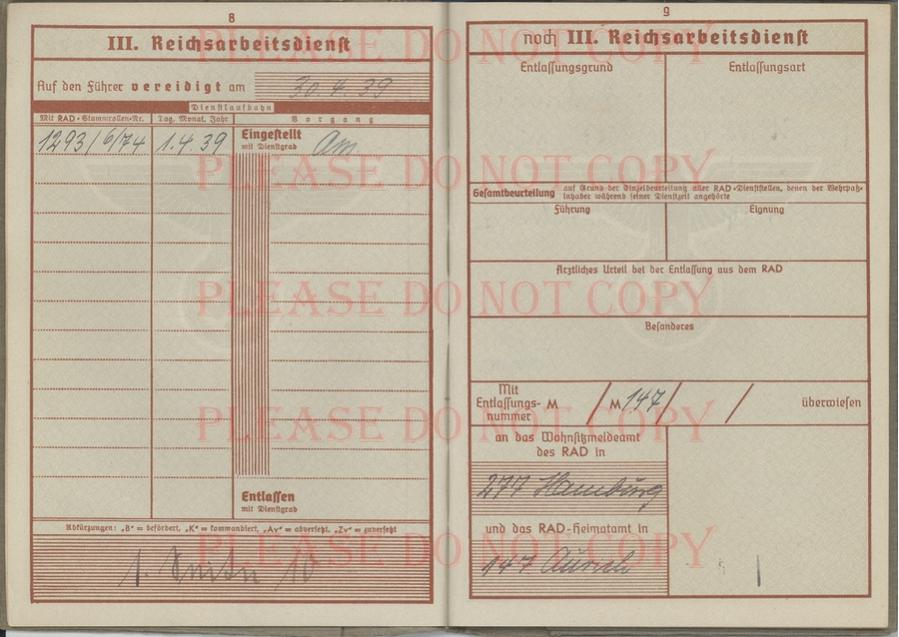 8
III. Reichsarbeitsdienst
Auf den Führer vereidigt am 30.4.39
Dienstlaufbahn
Mit RAD-Stammrollen-Nr. Tag, Monat, Jahr Vorgang
1293/6/74 1.4.39 Eingestellt
mit Dienstgrad Am.
Entlassen
mit Dienstgrad
Abkürzungen: „B“ = befördert, „K“ = kommandiert, „Av“ = abversetzt, „Zv“ = zuversetzt
9
noch III. Reichsarbeitsdienst
Entlassungsgrund Entlassungsart
Gesamtbeurteilung auf Grund der Einzelbeurteilung aller RAD-Dienststellen, denen der Wehrpaß-
inhaber während seiner Dienstzeit angehörte
Führung Eignung
Ärztliches Urteil bei der Entlassung aus dem RAD
Besonderes
Mit
Entlassungs- M / M 147 / / überwiesen
nummer
an das Wohnsitzmeldeamt
des RAD in
277 Hamburg
und das RAD-Heimatamt in
147 Aurich
PLEASE DO NOT COPY
PLEASE DO NOT COPY
PLEASE DO NOT COPY
PLEASE DO NOT COPY
PLEASE DO NOT COPY